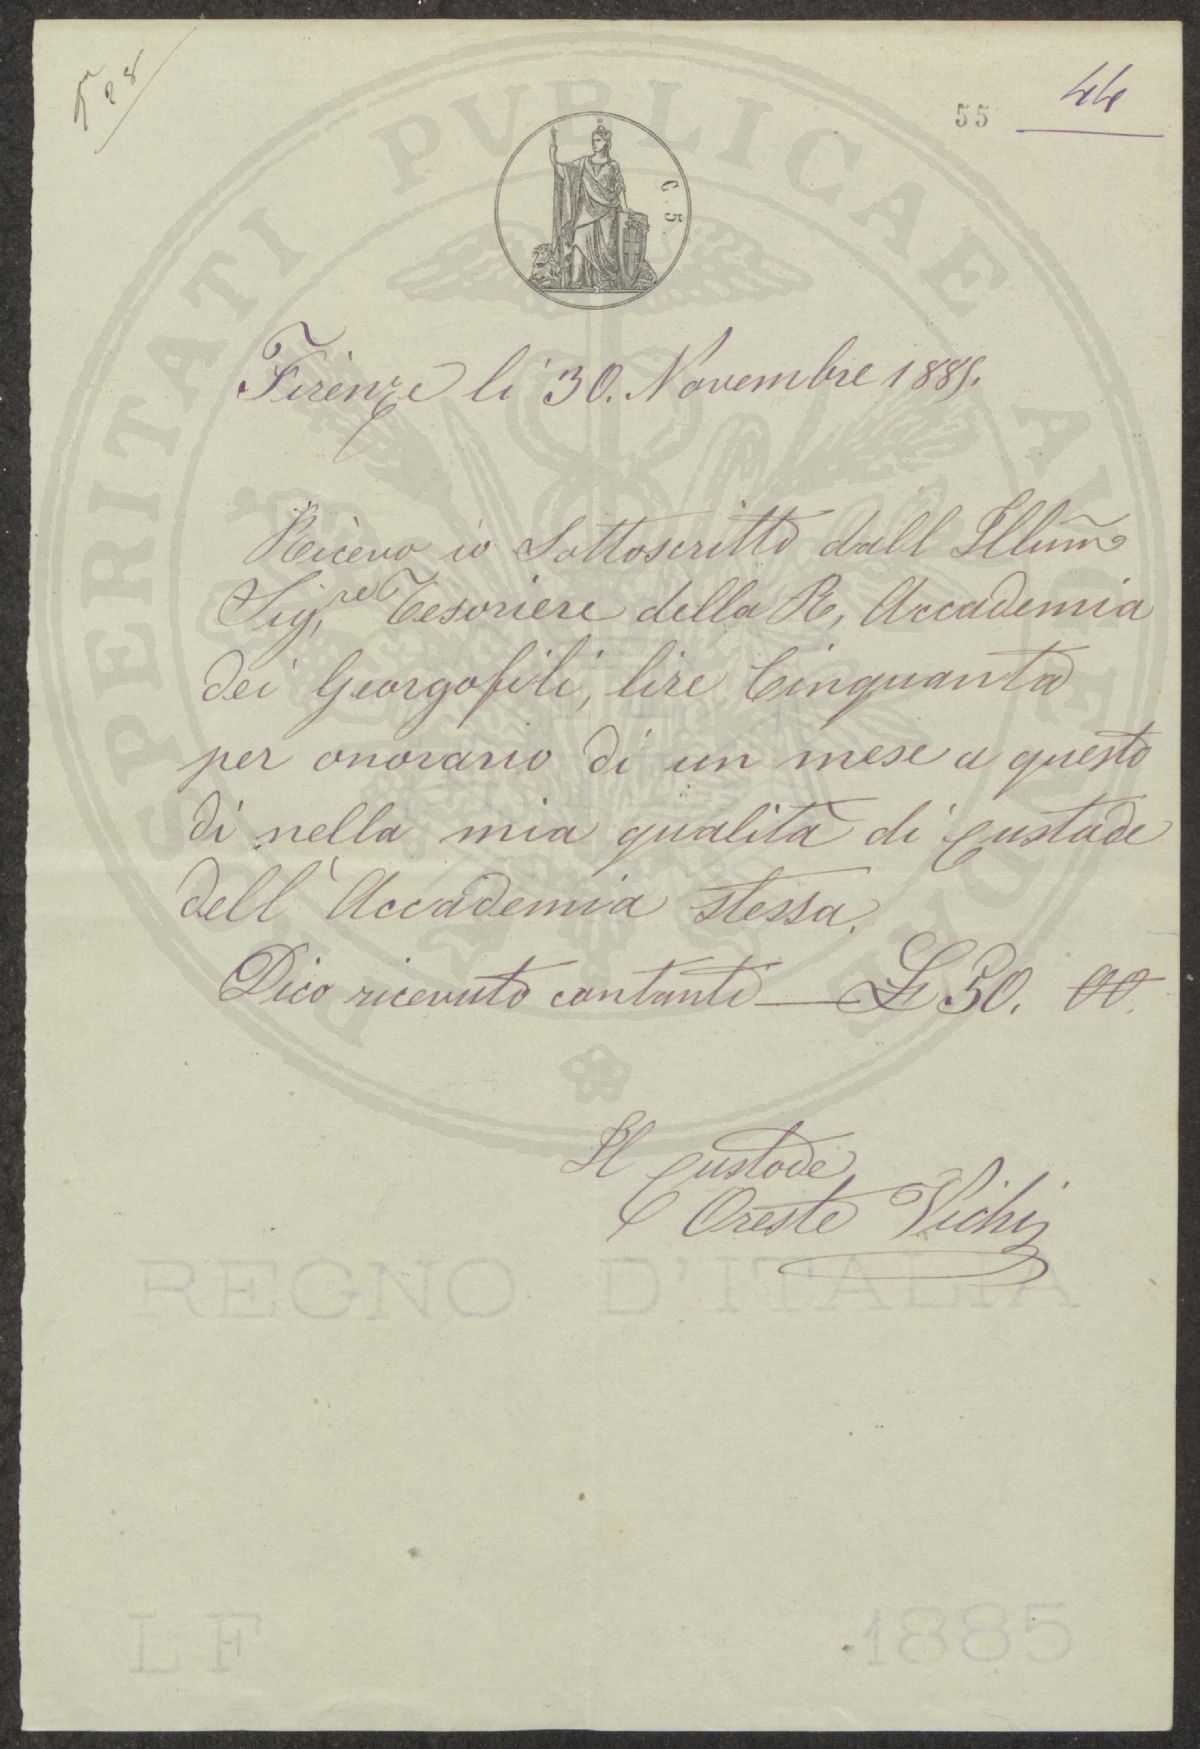 28
55
44
C. 5
PROSPERITATI PVBLICAE AVGENDAE
Firenze li 30. Novembre 1885.
Ricevo io Sottoscritto dall Illum̃o
Sig.re Tesoriere della R. Accademia
dei Georgofili, lire Cinquanta
per onorario di un mese a questo
di nella mia qualità di Custode
dell' Accademia stessa.
Dico ricevuto contanti — L 50. 00.
Il Custode
Oreste Vichi
REGNO D'ITALIA
LF 1885